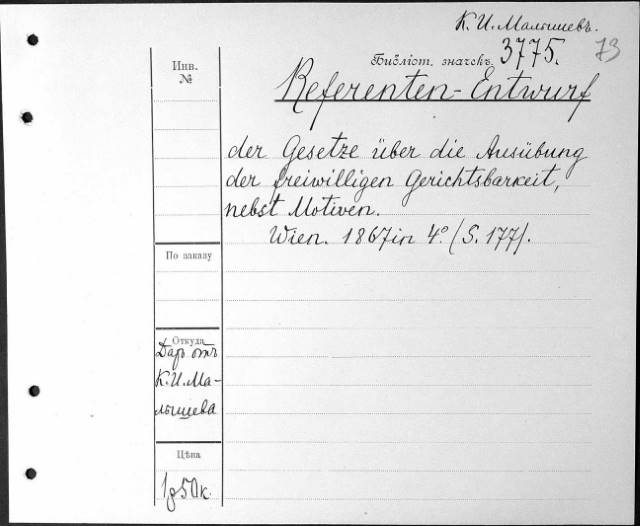 К. И. Малышевъ.
Библіот. значекъ 3775. 73
Инв.
№
Referenten-Entwurf
der Gesetze über die Ausübung
der freiwilligen Gerichtsbarkeit,
nebst Motiven.
Wien. 1867 in 4.° (S. 177).
По заказу
Откуда
Даръ отъ
К. И. Ма-
лышева
Цѣна
1 р 50 к.